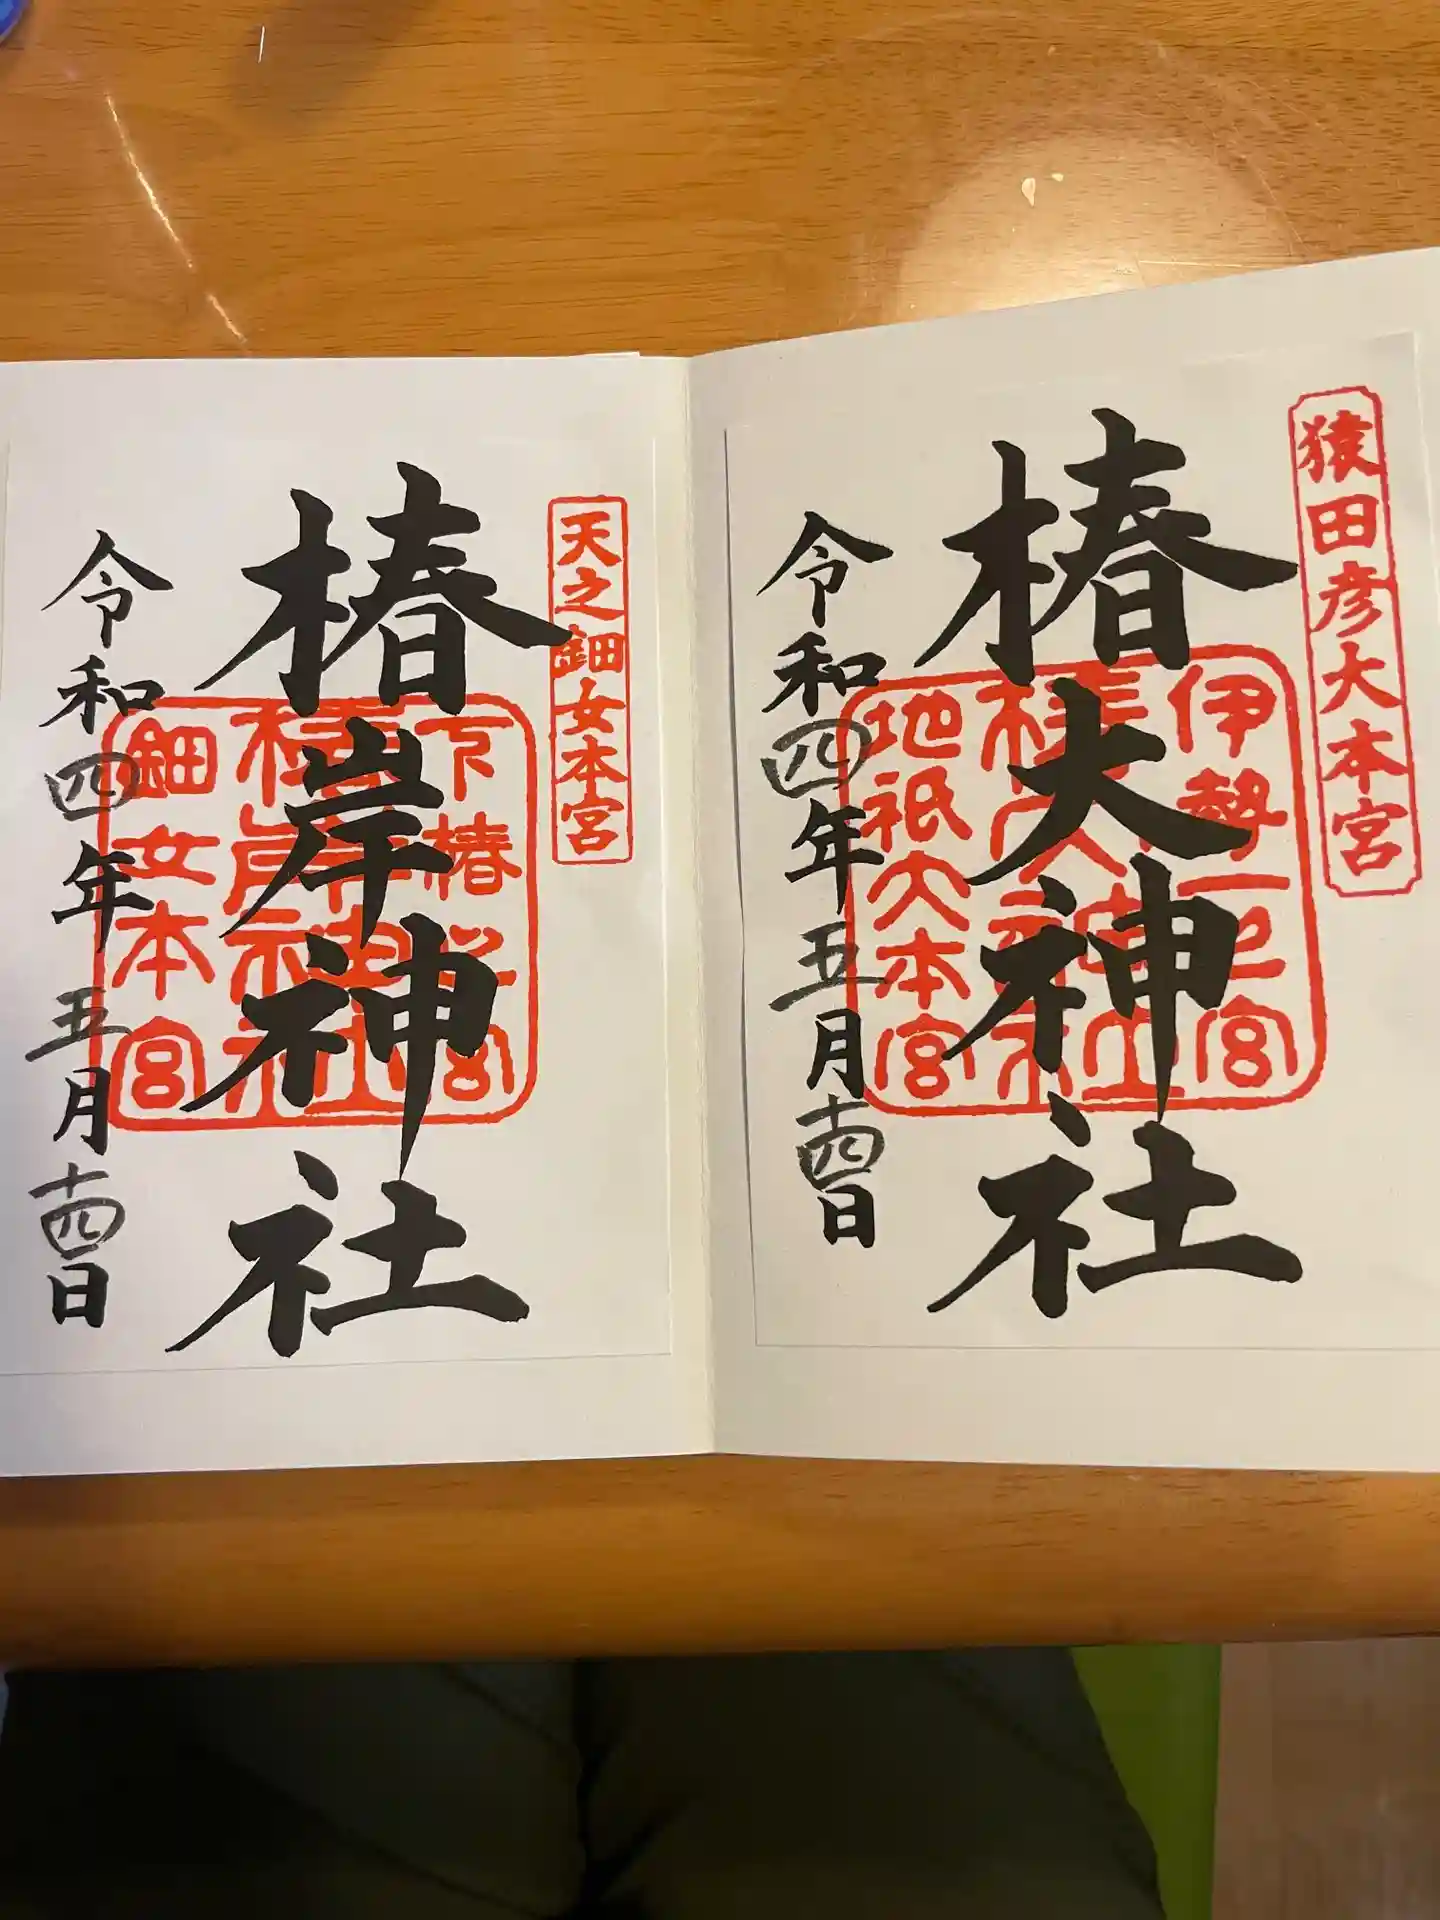 猿田彦大本宮
椿大神社
伊勢一之宮
椿大神社
地祇大本宮
令和四年五月十四日
天之鈿女本宮
椿岸神社
下椿
宮
椿岸神社
鈿女本宮
令和四年五月十四日